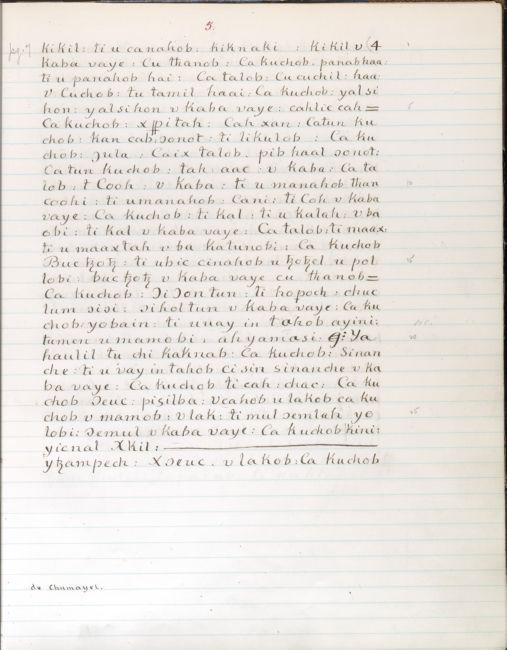 5.
pg. 7 kikil: ti u canahob: kiknaki : kikil v (4
Kaba vaye: Cu thanob: Ca kuchob. panabhaa:
ti u panahob hai: Ca talob: Cucuchil: haa:
v Cuchob: tu tamil haai: Ca kuchob: yalsi
hon: yalsihon v kaba vaye: cahlic cah= 5
Ca kuchob: xppitah: Cah xan: Catun ku
chob: kan cab,ɔonot: ti likulob : Ca ku
chob: ɔula: Caix talob. pib haal ɔonot:
Catun kuchob: tah aac: v kaba: Ca ta
lob: t Cooh: v kaba: ti u manahob than 10
coohi: ti umanahob: Cani: ti Coh v kaba
vaye: Ca kuchob: ti kal: ti u kalah: v ba
obi: ti kal v kaba vaye: Ca talob: ti maax:
ti u maaxtah v ba katunobi: Ca kuchob
Buc ꜩoꜩ: ti ubic cinahob u ꜩoꜩel u pol 15
lobi: buc ꜩoꜩ v kaba vaye cu thanob=
Ca kuchob: ɔiɔontun: ti hopoch: chuc
lum sisi: ɔiholtun v kaba vaye: Ca ku
chob: yobain: ti uuay in tahob ayini:
tumen u mamobi: ah yamasi: Ya 20
haulil tu chi kaknab: Ca kuchob: Sinan
che: ti u vay in tahob cisin sinanche v ka
ba vaye: Ca kuchob ti cah: chac: Ca ku
chob ɔeuc: pisilba: vcahob u lakob ca ku
chob v mamob: v lak: ti mul ɔemlah yo 25
lobi: ɔemul v kaba vaye: Ca kuchob kini:
yicnal Xkil:
yꜩampech: Xɔeuc. v lakob: Ca kuchob
de Chumayel.